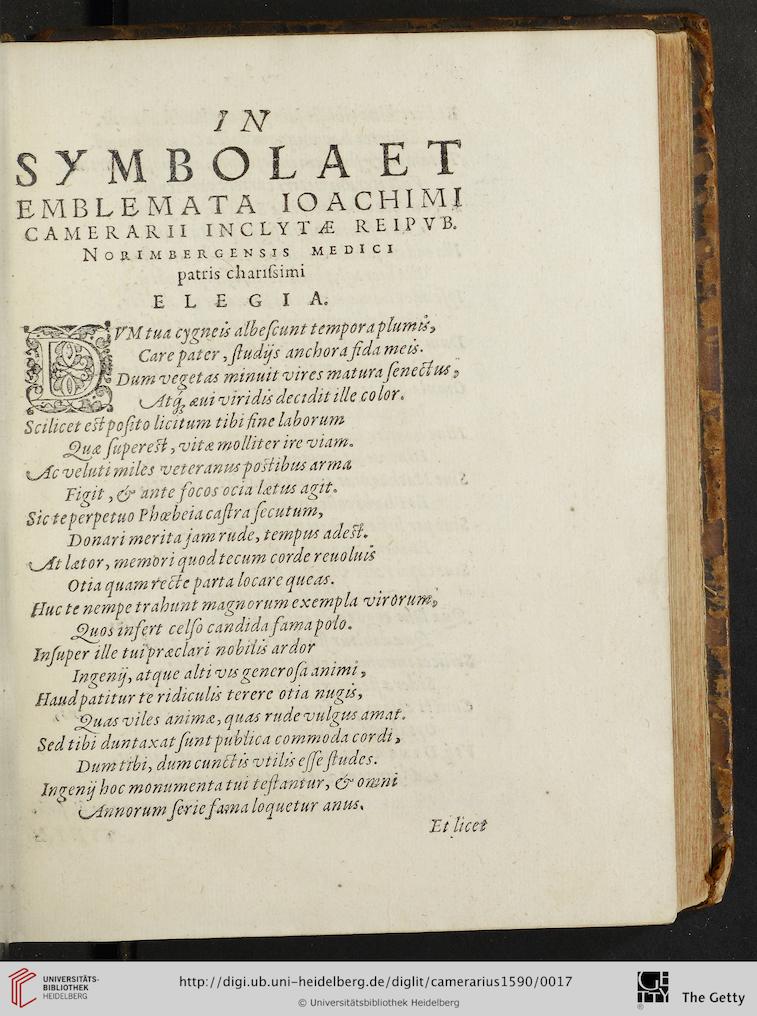 IN
SYMBOLA ET
EMBLEMATA IOACHIMI
CAMERARII INCLYTÆ REIPVB.
NORIMBERGENSIS MEDICI
patris chariſsimi
ELEGIA.
DVM tua cygneis albeſcunt tempora plumis,
Care pater, ſtudijs anchora fida meis.
Dum vegetas minuit vires matura ſenectus,
Atq; æui viridis decidit ille color.
Scilicet est poſito licitum tibi fine laborum
Quæ ſuperest, vitæ molliter ire viam.
Ac veluti miles veteranus postibus arma
Figit, & ante focos ocia lætus agit.
Sic te perpetuo Phœbeia caſtra ſecutum,
Donari merita jam rude, tempus adest.
At lætor, memori quod tecum corde reuoluis
Otia quam recte parta locare queas.
Huc te nempe trahunt magnorum exempla virorum,
Quos inſert celſo candida fama polo.
Inſuper ille tui præclari nobilis ardor
Ingenij, atque alti vis generoſa animi,
Haud patitur te ridiculis terere otia nugis,
Quas viles animæ, quas rude vulgus amat.
Sed tibi duntaxat ſunt publica commoda cordi,
Dum tibi, dum cunctis vtilis eſſe ſtudes.
Ingenij hoc monumenta tui teſtantur, & omni
Annorum ſerie fama loquetur anus.
Et licet
UNIVERSITÄTS-
BIBLIOTHEK
HEIDELBERG
http://digi.ub.uni-heidelberg.de/diglit/camerarius1590/0017
© Universitätsbibliothek Heidelberg
The Getty